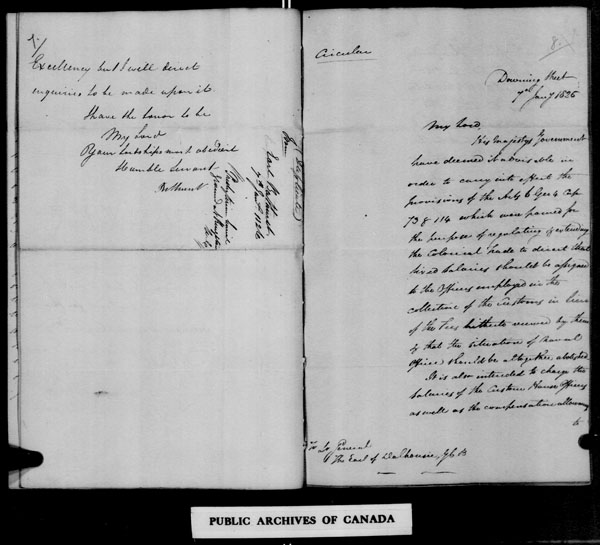 Excellency but I will direct
enquiries to be made upon it
I have the honor to be
My Lord
Your Lordships most obedient
Humble Servant
Bathurst
Earl Bathurst
7th Jany 1826
Circular
8.
Downing Street
7th Jany 1826
My Lord,
His Majestys Government
have deemed it advisable in
order to carry into effect the
provisions of the Acts 6 Geo 4 Cap
73 & 114 which were passed for
the purpose of regulating & extending
the Colonial Trade to direct that
fixed salaries should be assigned
to the Officers employed in the
collection of the Customs in lieu
of the Fees hitherto received by them
& that the situation of Naval
Officer should be altogether abolished
It is also intended to charge the
salaries of the Custom House Officers
as well as the compensation allowances
to
Lt General
The Earl of Dalhousie, GCB
PUBLIC ARCHIVES OF CANADA